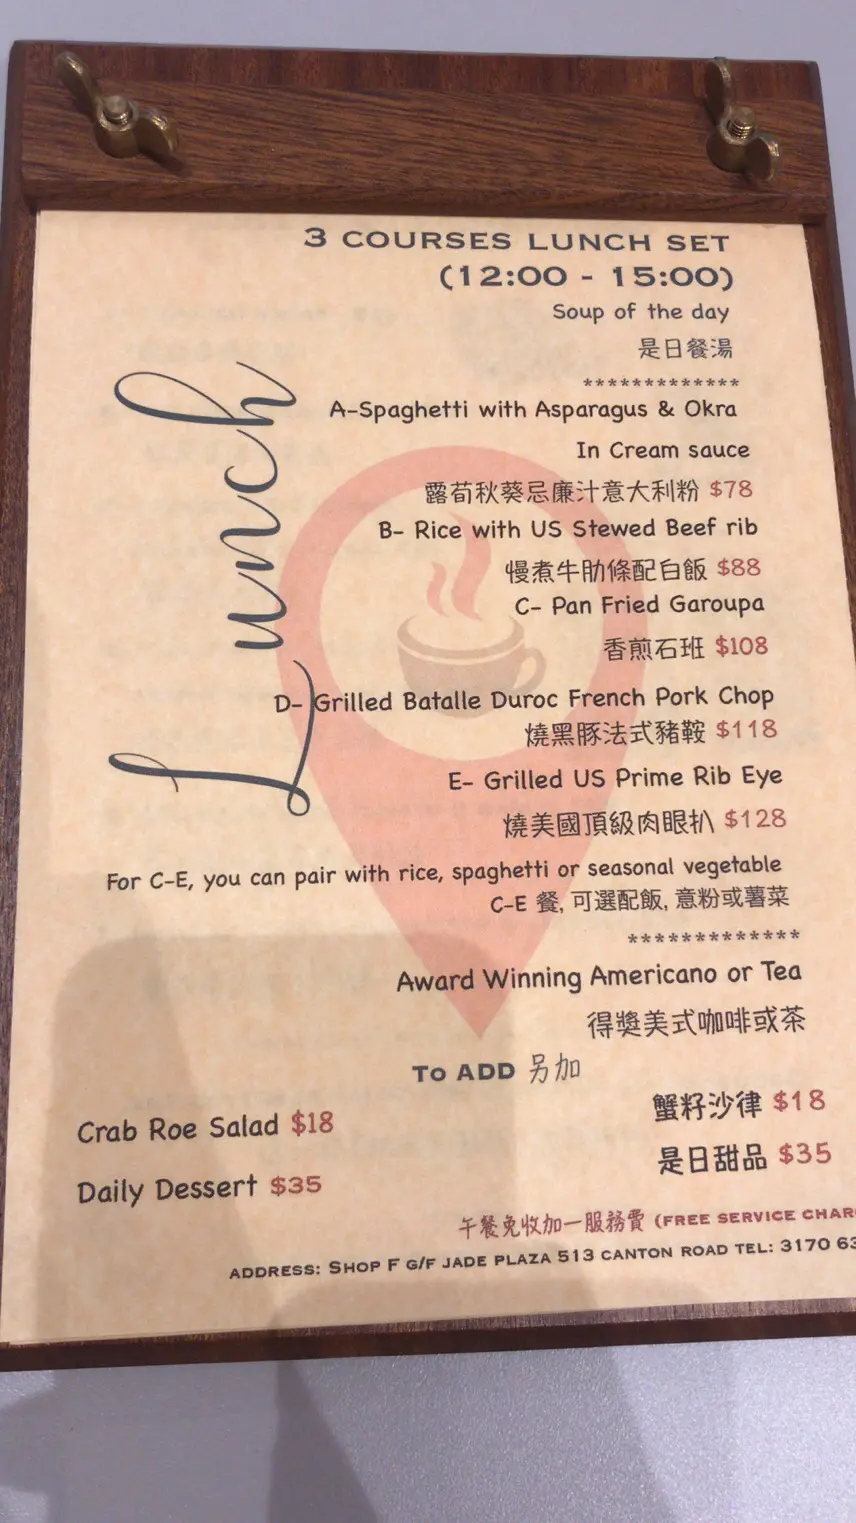 3 COURSES LUNCH SET
(12:00 - 15:00)
Soup of the day
是日餐湯
*************
Lunch
A-Spaghetti with Asparagus & Okra
In Cream sauce
露荀秋葵忌廉汁意大利粉 $78
B- Rice with US Stewed Beef rib
慢煮牛肋條配白飯 $88
C- Pan Fried Garoupa
香煎石班 $108
D- Grilled Batalle Duroc French Pork Chop
燒黑豚法式豬鞍 $118
E- Grilled US Prime Rib Eye
燒美國頂級肉眼扒 $128
For C-E, you can pair with rice, spaghetti or seasonal vegetable
C-E 餐, 可選配飯, 意粉或薯菜
*************
Award Winning Americano or Tea
得獎美式咖啡或茶
To ADD 另加
Crab Roe Salad $18
蟹籽沙律 $18
Daily Dessert $35
是日甜品 $35
午餐免收加一服務費 (FREE SERVICE
ADDRESS: SHOP F G/F JADE PLAZA 513 CANTON ROAD TEL: 3170